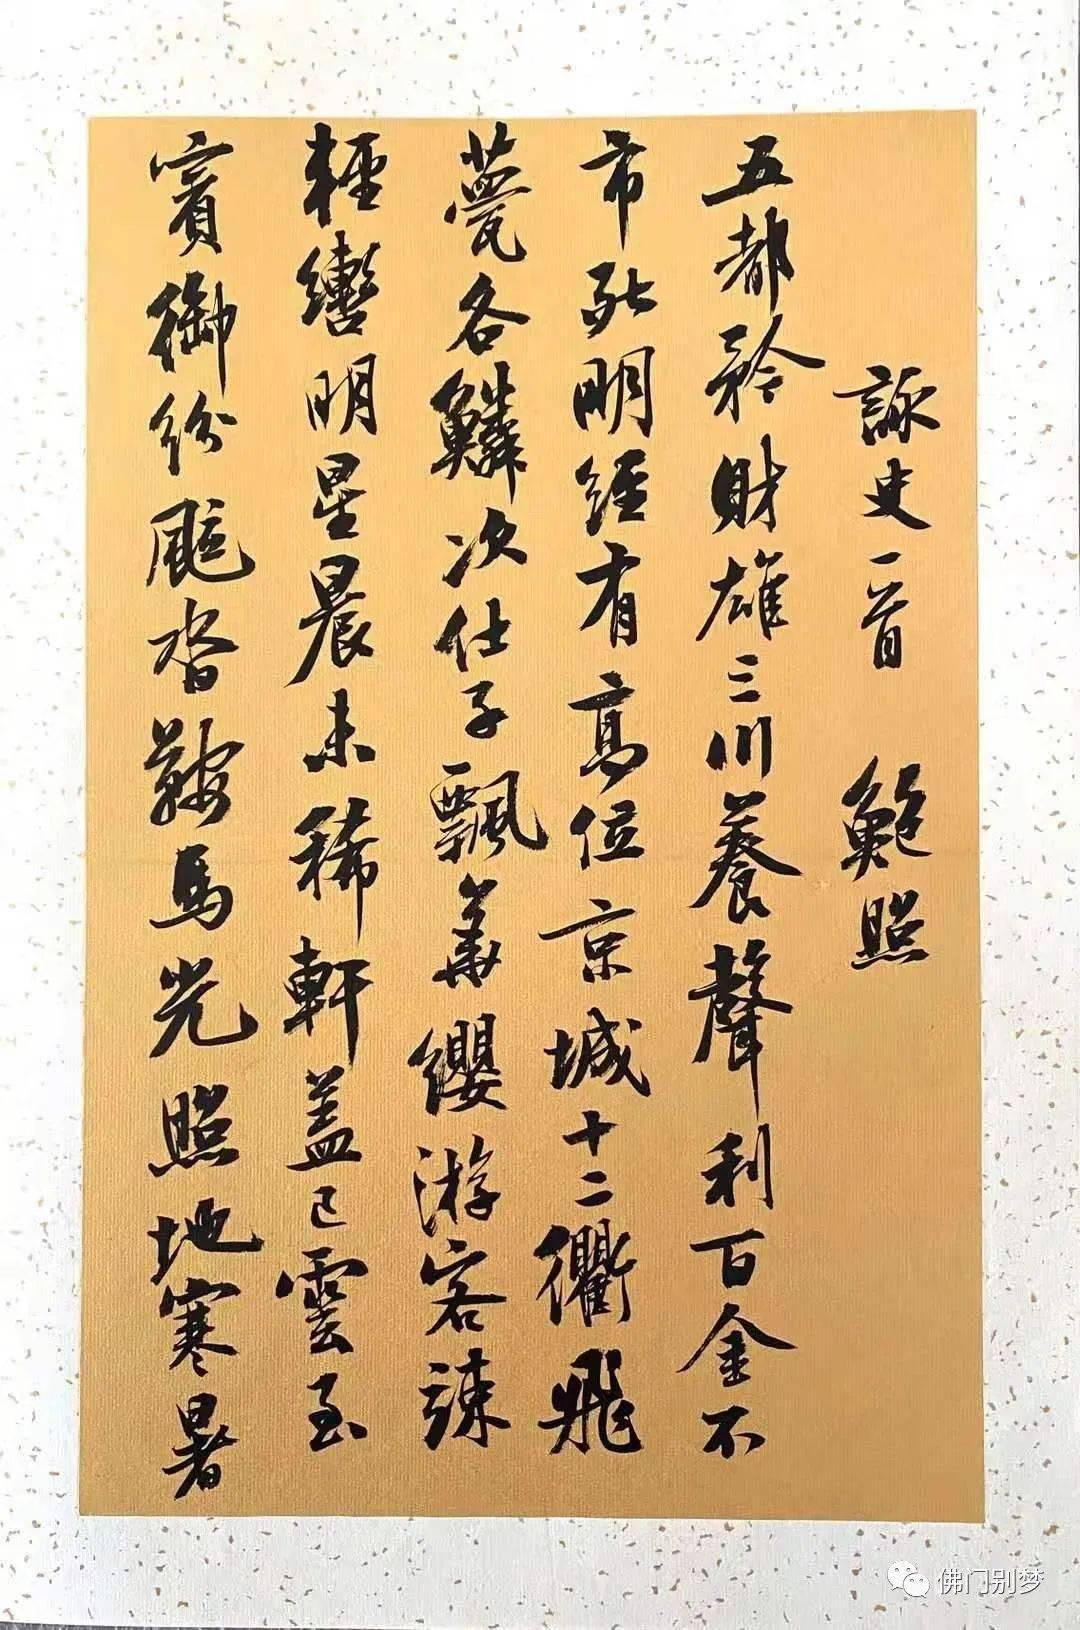 詠史一首 鮑照
五都矜財雄三川養聲利百金不
市死明經有高位京城十二衢飛
甍各鱗次仕子飄華纓游客竦
輕轡明星晨未稀軒蓋已雲至
賓御紛颯沓鞍馬光照地寒暑
佛门别梦